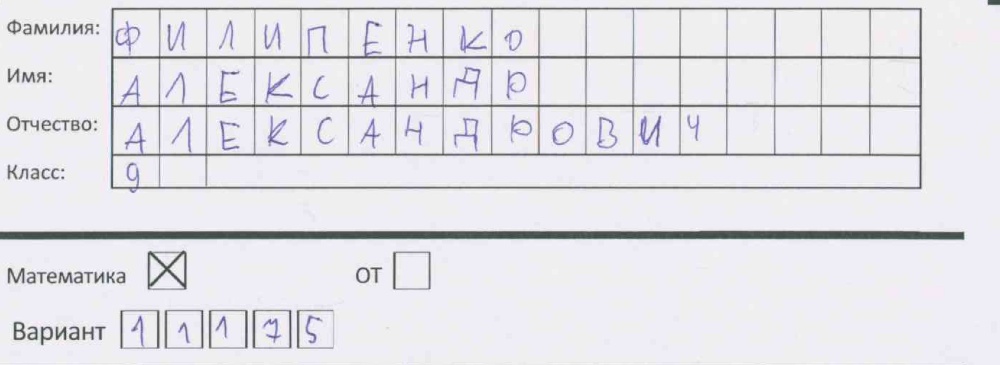 Фамилия: ФИЛИПЕНКО
Имя: АЛЕКСАНДР
Отчество: АЛЕКСАНДРОВИЧ
Класс: 9
Математика ☒ ОТ ☐
Вариант 11175